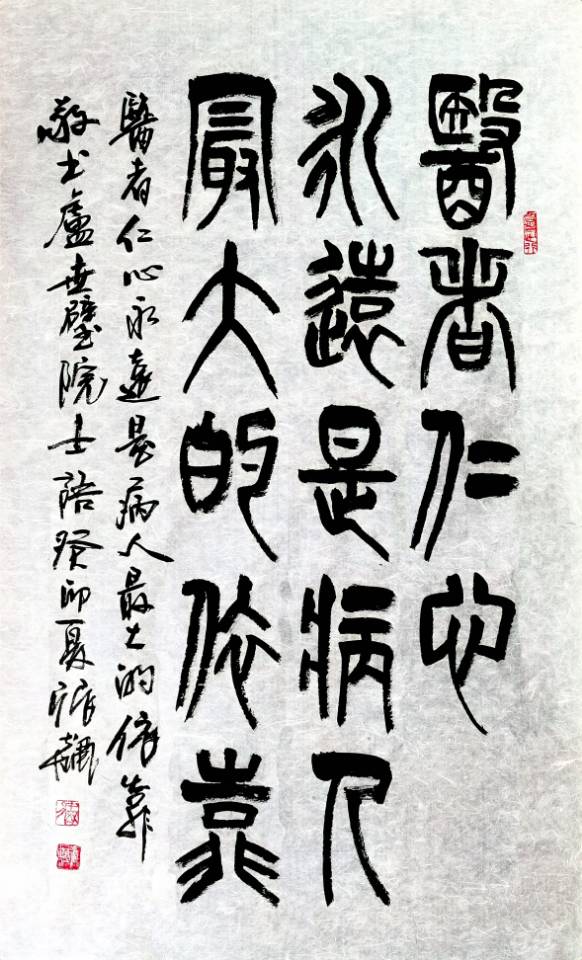 醫者仁心
永遠是病人
最大的依靠
醫者仁心永遠是病人最大的依靠
敬书盧世璧院士語癸卯夏